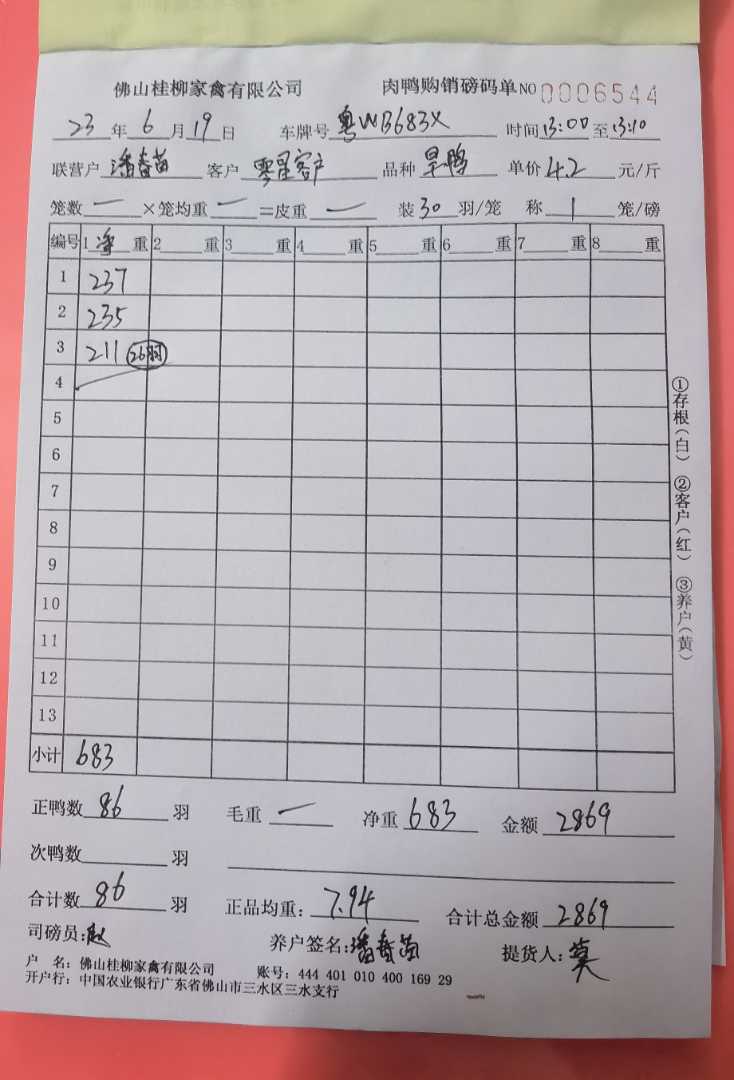 佛山桂柳家禽有限公司 肉鸭购销磅码单 NO 0006544
23 年 6 月 19 日 车牌号 粤WB683X 时间 13:00 至 13:10
联营户 潘春苗 客户 零星客户 品种 旱鸭 单价 4.2 元/斤
笼数 一 ×笼均重 一 =皮重 一 装 30 羽/笼 称 1 笼/磅
编号 1 净 重 2 重 3 重 4 重 5 重 6 重 7 重 8 重
1 237
2 235
3 211 26羽
4
5
6
7
8
9
10
11
12
13
小计 683
①存根(白) ②客户(红) ③养户(黄)
正鸭数 86 羽 毛重 一 净重 683 金额 2869
次鸭数 羽
合计数 86 羽 正品均重: 7.94 合计总金额 2869
司磅员: 赵 养户签名: 潘春苗 提货人: 莫
户 名: 佛山桂柳家禽有限公司 账号: 444 401 010 400 169 29
开户行: 中国农业银行广东省佛山市三水区三水支行